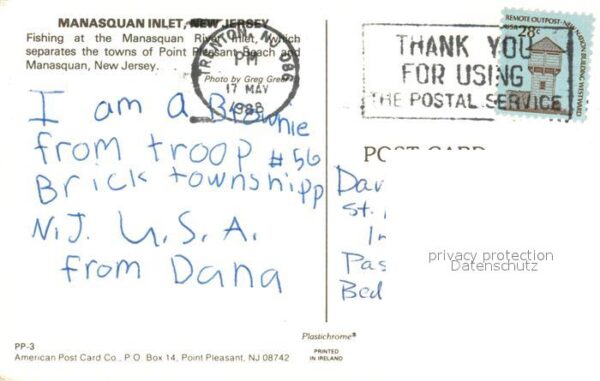 MANASQUAN INLET, NEW JERSEY
Fishing at the Manasquan River Inlet, which
separates the towns of Point Pleasant Beach and
Manasquan, New Jersey.
Photo by Greg
TRENTON, NJ 086
PM
17 MAY
1988
THANK YOU
FOR USING
THE POSTAL SERVICE
REMOTE OUTPOST · NEW NATION BUILDING WESTWARD
USA 28c
I am a Brownie
from troop #56
Brick townshipp
N.J. U.S.A.
from Dana
POST CARD
Dav
St.
In
Pas
Bed
privacy protection
Datenschutz
Plastichrome®
PP-3
American Post Card Co., P O Box 14, Point Pleasant, NJ 08742
PRINTED
IN IRELAND